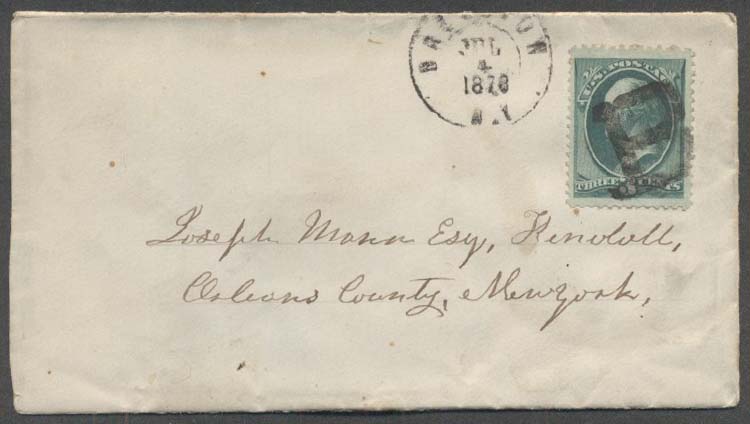 JUL
4
1876
N.Y
U.S. POSTAGE
THREE CENTS
Joseph Mann Esq, Kendall,
Orleans County, New York,